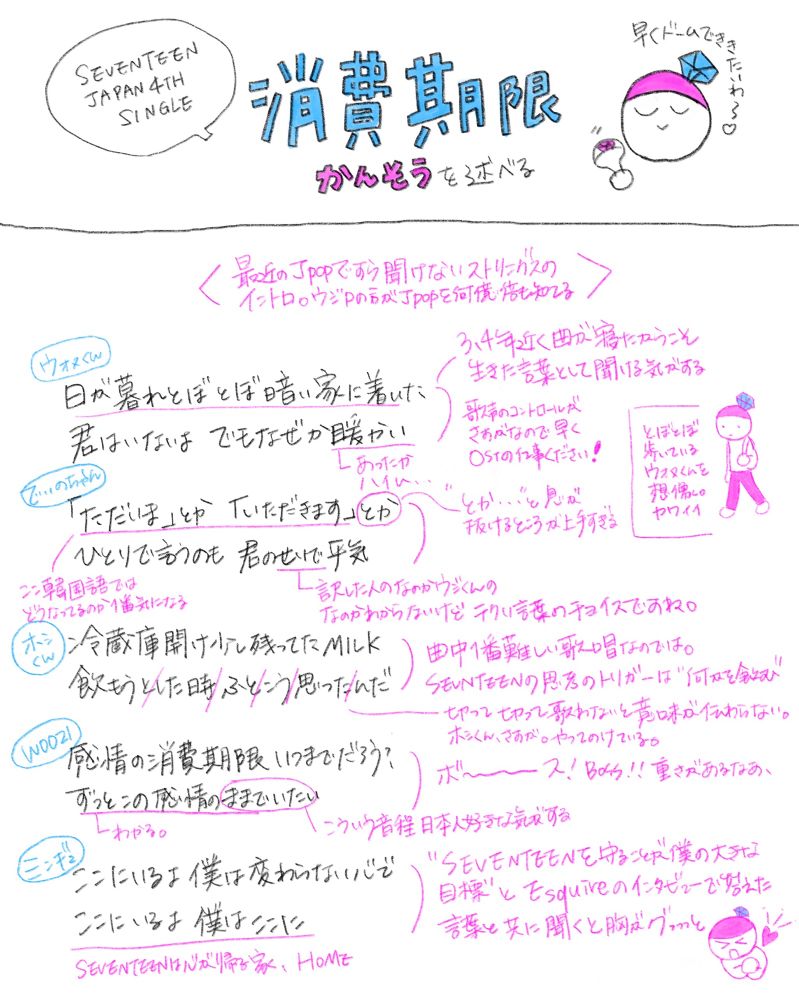 SEVENTEEN
JAPAN 4TH
SINGLE
消費期限
かんそうを述べる
早くドームでききたいわ〜♡
最近のJpopですら聞けないストリングスの
イントロ。ウジPの方がJpopを何億倍も知ってる
ウォヌくん
日が暮れとぼとぼ暗い家に着いた
君はいないよ でもなぜか暖かい
あったか
ハイム…
3、4年近く曲が寝たからこそ
生きた言葉として聞ける気がする
歌声のコントロールが
さすがなので早く
OSTの仕事ください!
とぼとぼ
歩いている
ウォヌくんを
想像し。
カワイイ
でぃのちゃん
「ただいま」とか「いただきます」とか
ひとりで言うのも 君のせいで平気
"とか…"と息が
抜けるところが上手すぎる
ここ韓国語では
どうなってるのか1番気になる
訳した人のなのかウジくんの
なのかわからないけど テクい言葉のチョイスですね。
ホシくん
冷蔵庫開け少し残ってたMILK
飲もうとした時ふとこう思ったんだ
曲中1番難しい歌唱なのでは。
SEVNTEENの思考のトリガーは"何かを飲む"
切って切って歌わないと意味が伝わらない。
ホシくん、さすが。やってのけている。
WOOZI
感情の消費期限いつまでだろう?
ずっとこの感情のままでいたい
わかる。
こういう音程日本人好きな気がする
ボ〜〜ス! Boss!! 重さがあるなあ、
ミンギュ
ここにいるよ 僕は変わらない心で
ここにいるよ 僕はここに
SEVENTEENは心が帰る家、HOME
"SEVENTEENを守ることが僕の大きな
目標"とEsquireのインタビューで答えた
言葉と共に聞くと胸がグっっっと